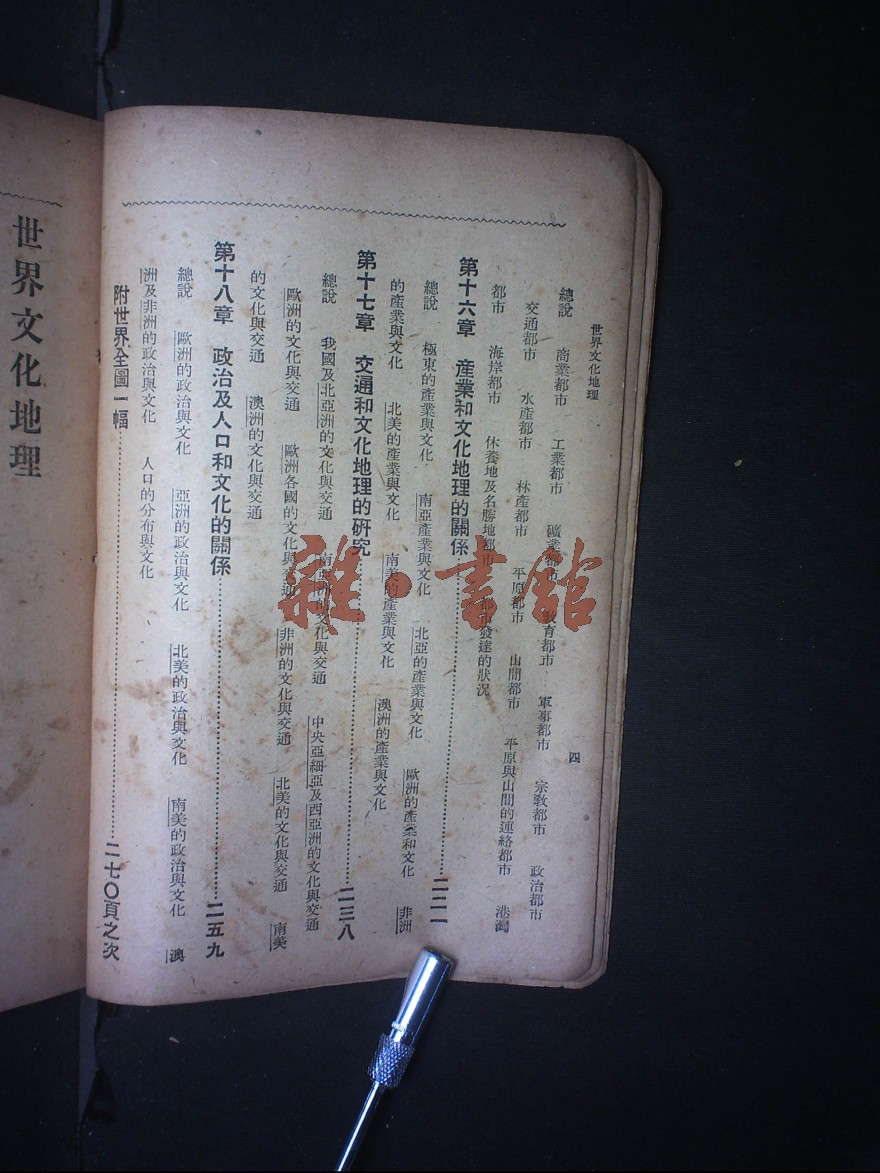 世界文化地理
四
總說 商業都市 工業都市 礦業都市 敎育都市 軍事都市 宗敎都市 政治都市
交通都市 水產都市 林產都市 平原都市 山間都市 平原與山間的連絡都市 港灣
都市 海岸都市 休養地及名勝地都市 都市發達的狀況
第十六章 產業和文化地理的關係 二二一
總說 極東的產業與文化 南亞產業與文化 北亞的產業與文化 歐洲的產業和文化 非洲
的產業與文化 北美的產業與文化 南美的產業與文化 澳洲的產業與文化
第十七章 交通和文化地理的硏究 二三八
總說 我國及北亞洲的文化與交通 南亞洲的文化與交通 中央亞細亞及西亞洲的文化與交通
歐洲的文化與交通 歐洲各國的文化與交通 非洲的文化與交通 北美的文化與交通 南美
的文化與交通 澳洲的文化與交通
第十八章 政治及人口和文化的關係 二五九
總說 歐洲的政治與文化 亞洲的政治與文化 北美的政治與文化 南美的政治與文化 澳
洲及非洲的政治與文化 人口的分布與文化
附世界全圖一幅 二七〇頁之次
世界文化地理
雜·書館